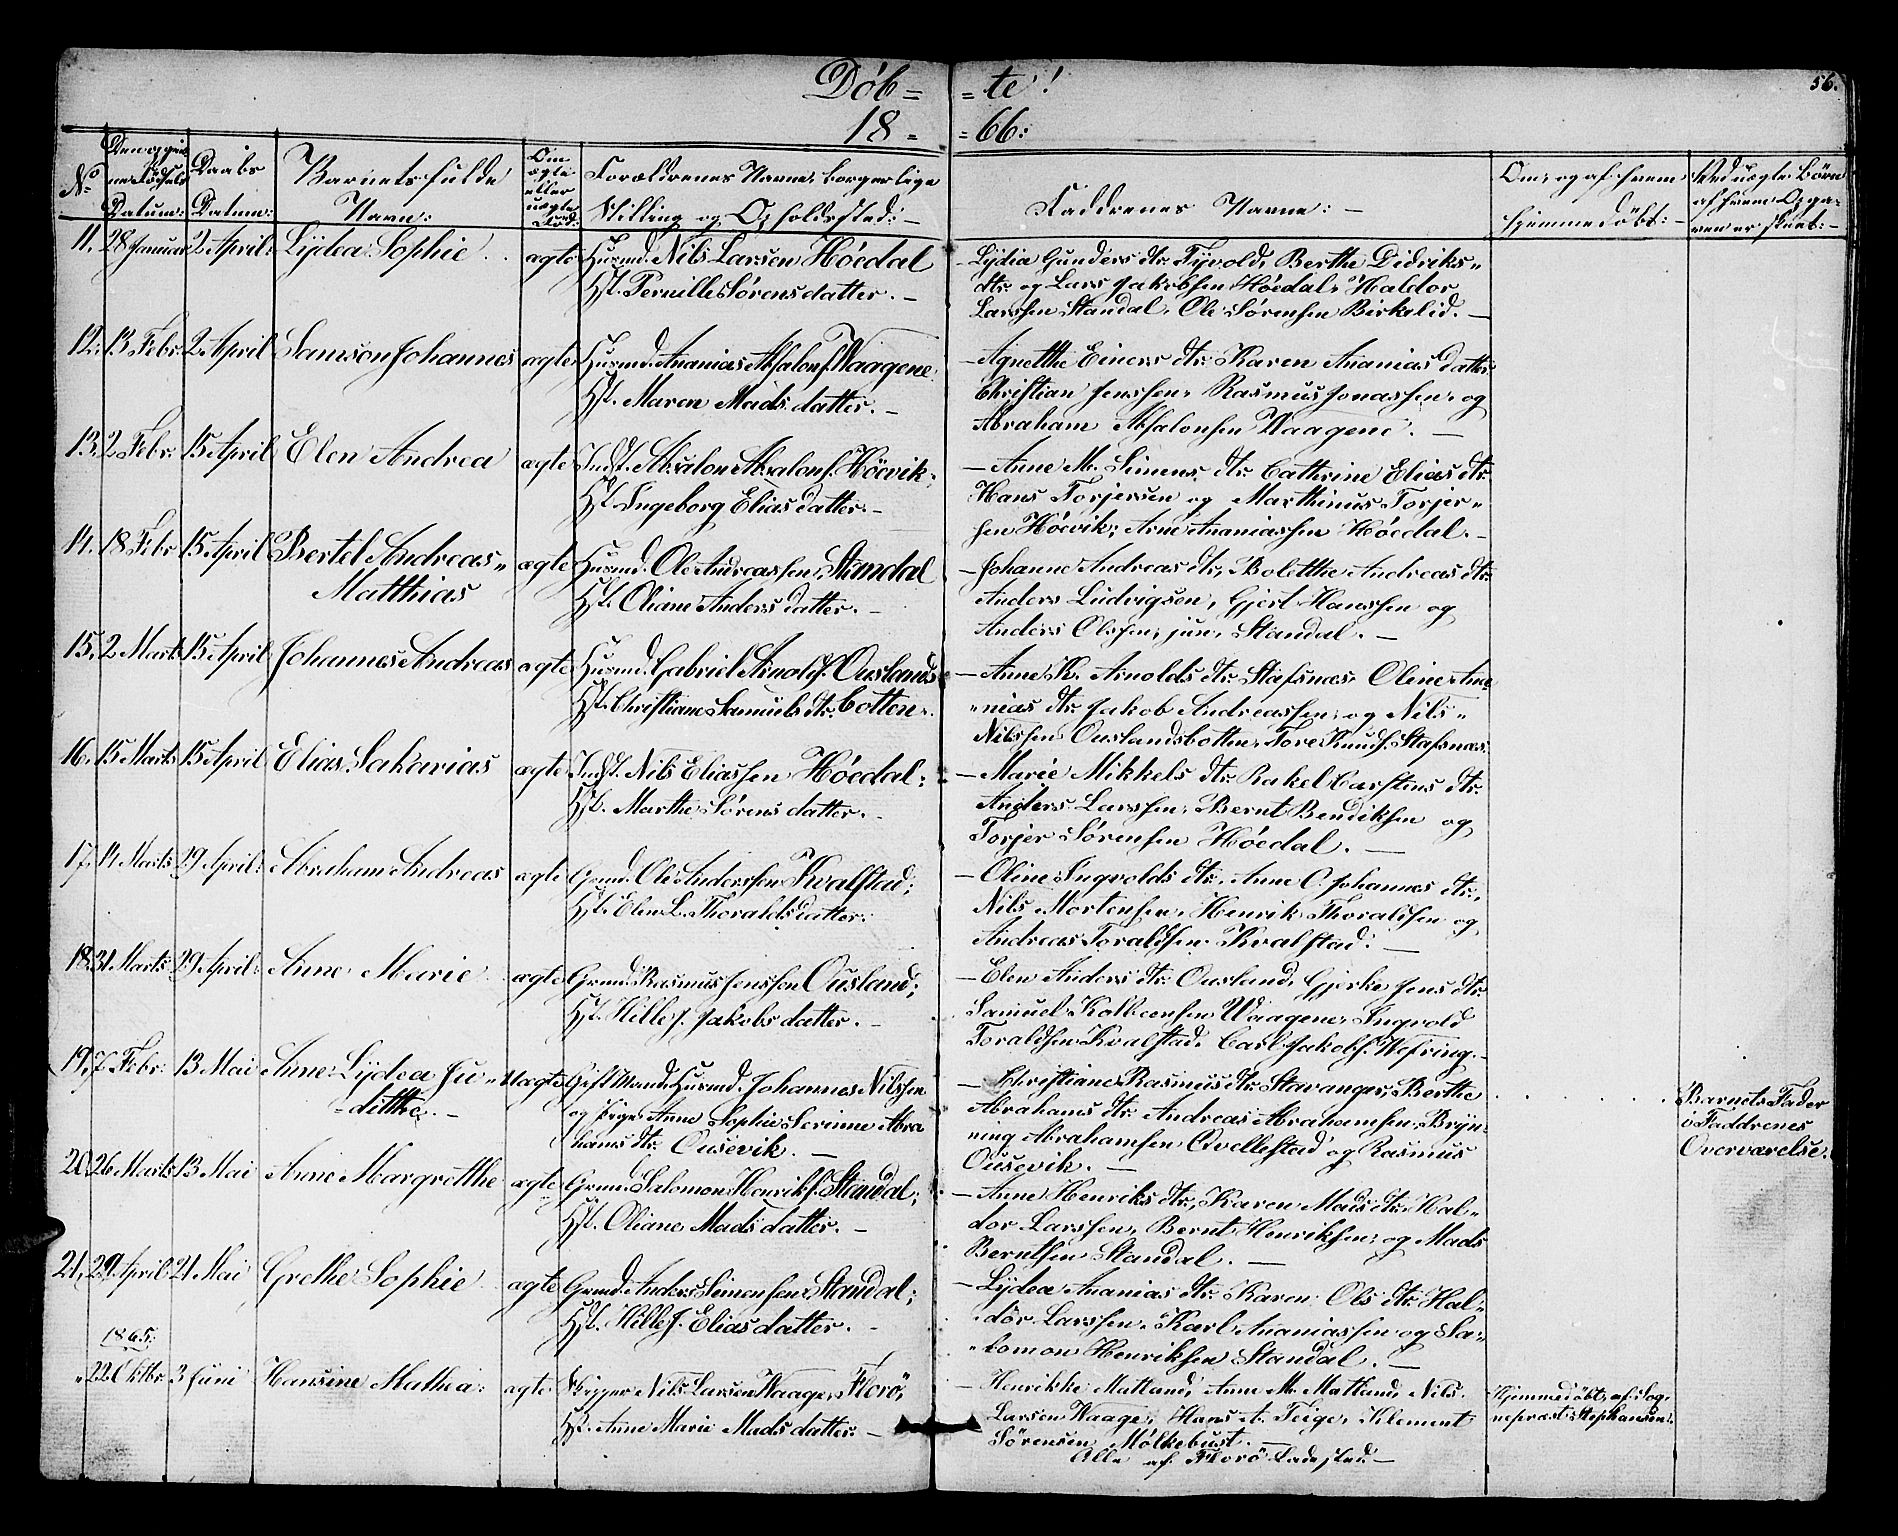 Döb= =te!
56.
18= =66:
No
Den opgivne Födsels Datum:
Daabs Datum:
Barnets fulde Navn:
Om ægte eller uægte Född:
Forældrenes Navne, borgerlige Stilling og Opholdssted:
Faddrenes Navne:
Om, og af hvem hjemmedöbt:
Ved uægte Börn af hvem Opgaven er skeet:
11. 28 Januar 2 April: Lÿdea Sophie ægte Husmd. Nils Larsen Höedal
Hst. Pernille Sörensdatter.
Lÿdia Gunders dtr. Tÿvold, Berthe Didriks-
dtr. og Lars Jakobsen Höedal, Haldor
Larssen Standal, Ole Sörensen Birkelid.
12. 13 Febr. 2 April Samson Johannes ægte Husmd. Ananias Absalons. Waagene
Hst. Maren Madsdatter.
Agnetthe Einers dtr. Karen Ananias datter
Christian Jenssen, Rasmus Jonassen, og
Abraham Absalonsen Waagene.
13. 2 Febr. 15 April Elen Andrea ægte Indst. Absalon Absalons. Höevik;
Hst. Ingeborg Eliasdatter.
Anne M. Simens dtr. Cathrine Elias dtr.
Hans Torjersen og Marthinus Torjer-
sen Höevik; Arne Ananiassen Höedal.
14. 18 Febr 15 April Bertel Andreas ægte Husmd. Ole Andreassen, Standal
Matthias
Hst. Oliane Andersdatter.
Johanne Andreas dtr, Boletthe Andreas dtr.
Anders Ludvigsen, Gjert Hanssen og
Anders Olssen, jun. Standal.
15. 2 Marts 15 April Johannes Andreas ægte Husmd. Gabriel Arnolds. Ouslands
Hst. Christiane Samuels dtr. botten.
Anne K. Arnolds dtr. Stafsnæs, Oline Ana-
nias dtr. Jakob Andreassen, og Nils
Nilssen Ouslandsbotten, Tore Knuds. Stafsnæs.
16. 15 Marts 15 April Elias Sakarias ægte Indst. Nils Eliassen Höedal;
Hst. Marthe Sörensdatter.
Marie Mikkels dtr. Rakel Carstens dtr.
Anders Larssen, Bernt Bendiksen og
Torjer Sörensen Höedal.
17. 14 Marts 29 April Abraham Andreas ægte Grmd. Ole Anderssen Kvalstad;
Hst. Elen L. Thoraldsdatter.
Oline Ingvolds dtr. Anne C. Johannes dtr.
Nils Mortensen, Henrik Thoraldsen og
Andreas Toraldsen Kvalstad.
18. 31 Marts 29 April Anne Marie ægte Grmd. Rasmus Jenssen Ousland;
Hst. Hille J. Jakobsdatter.
Elen Anders dtr. Ousland, Gjerke Jens dtr.
Samuel Kolbeensen Waagene, Ingvold
Toraldsen Kvalstad, Carl Jakobs. Wefring.
19. 7 Febr. 13 Mai Anne Lÿdea Ju- Uagte Gift Mand, Husmd. Johannes Nilssen
ditthe.
og Pige Anne Sophie Serinne Abra
hams dtr. Ousevik.
Christiane Rasmus dtr. Stavanger, Berthe
Abrahams dtr. Andreas Abrahamsen, Brÿn-
ning Abrahamsen Qvellestad og Rasmus
Ousevik.
Barnets Fader
i Faddrenes
Overværelse.
20. 26 Marts 13 Mai Anne Margretthe ægte Grmd. Salomon Henriks. Standal;
Hst. Oliane Madsdatter.
Anne Henriks dtr, Karen Mads dtr. Hal-
dor Larssen, Bernt Henriksen, og Mads
Berntsen Standal.
21. 29 April 21 Mai Grethe Sophie ægte Grmd. Anders Simensen Standal;
Hst. Hille J. Eliasdatter.
Lÿdea Ananias dtr. Karen Ols dtr. Hal-
dor Larssen, Karl Ananiassen og Sa-
lomon Henriksen Standal.
1865:
22 Oktbr. 3 Juni Hansine Mathea: ægte Skipper Nils Larsen Waage, Florö;
Hst. Anne Marie Madsdatter.
Henrikke Matland, Anne M. Matland, Nils
Larsen Waage, Hans A. Teige, Klement
Sörensen Mölkebust.
Alle af Florö Ladested.
Hjemmedöbt, af Sog-
nepræst Stephansen.